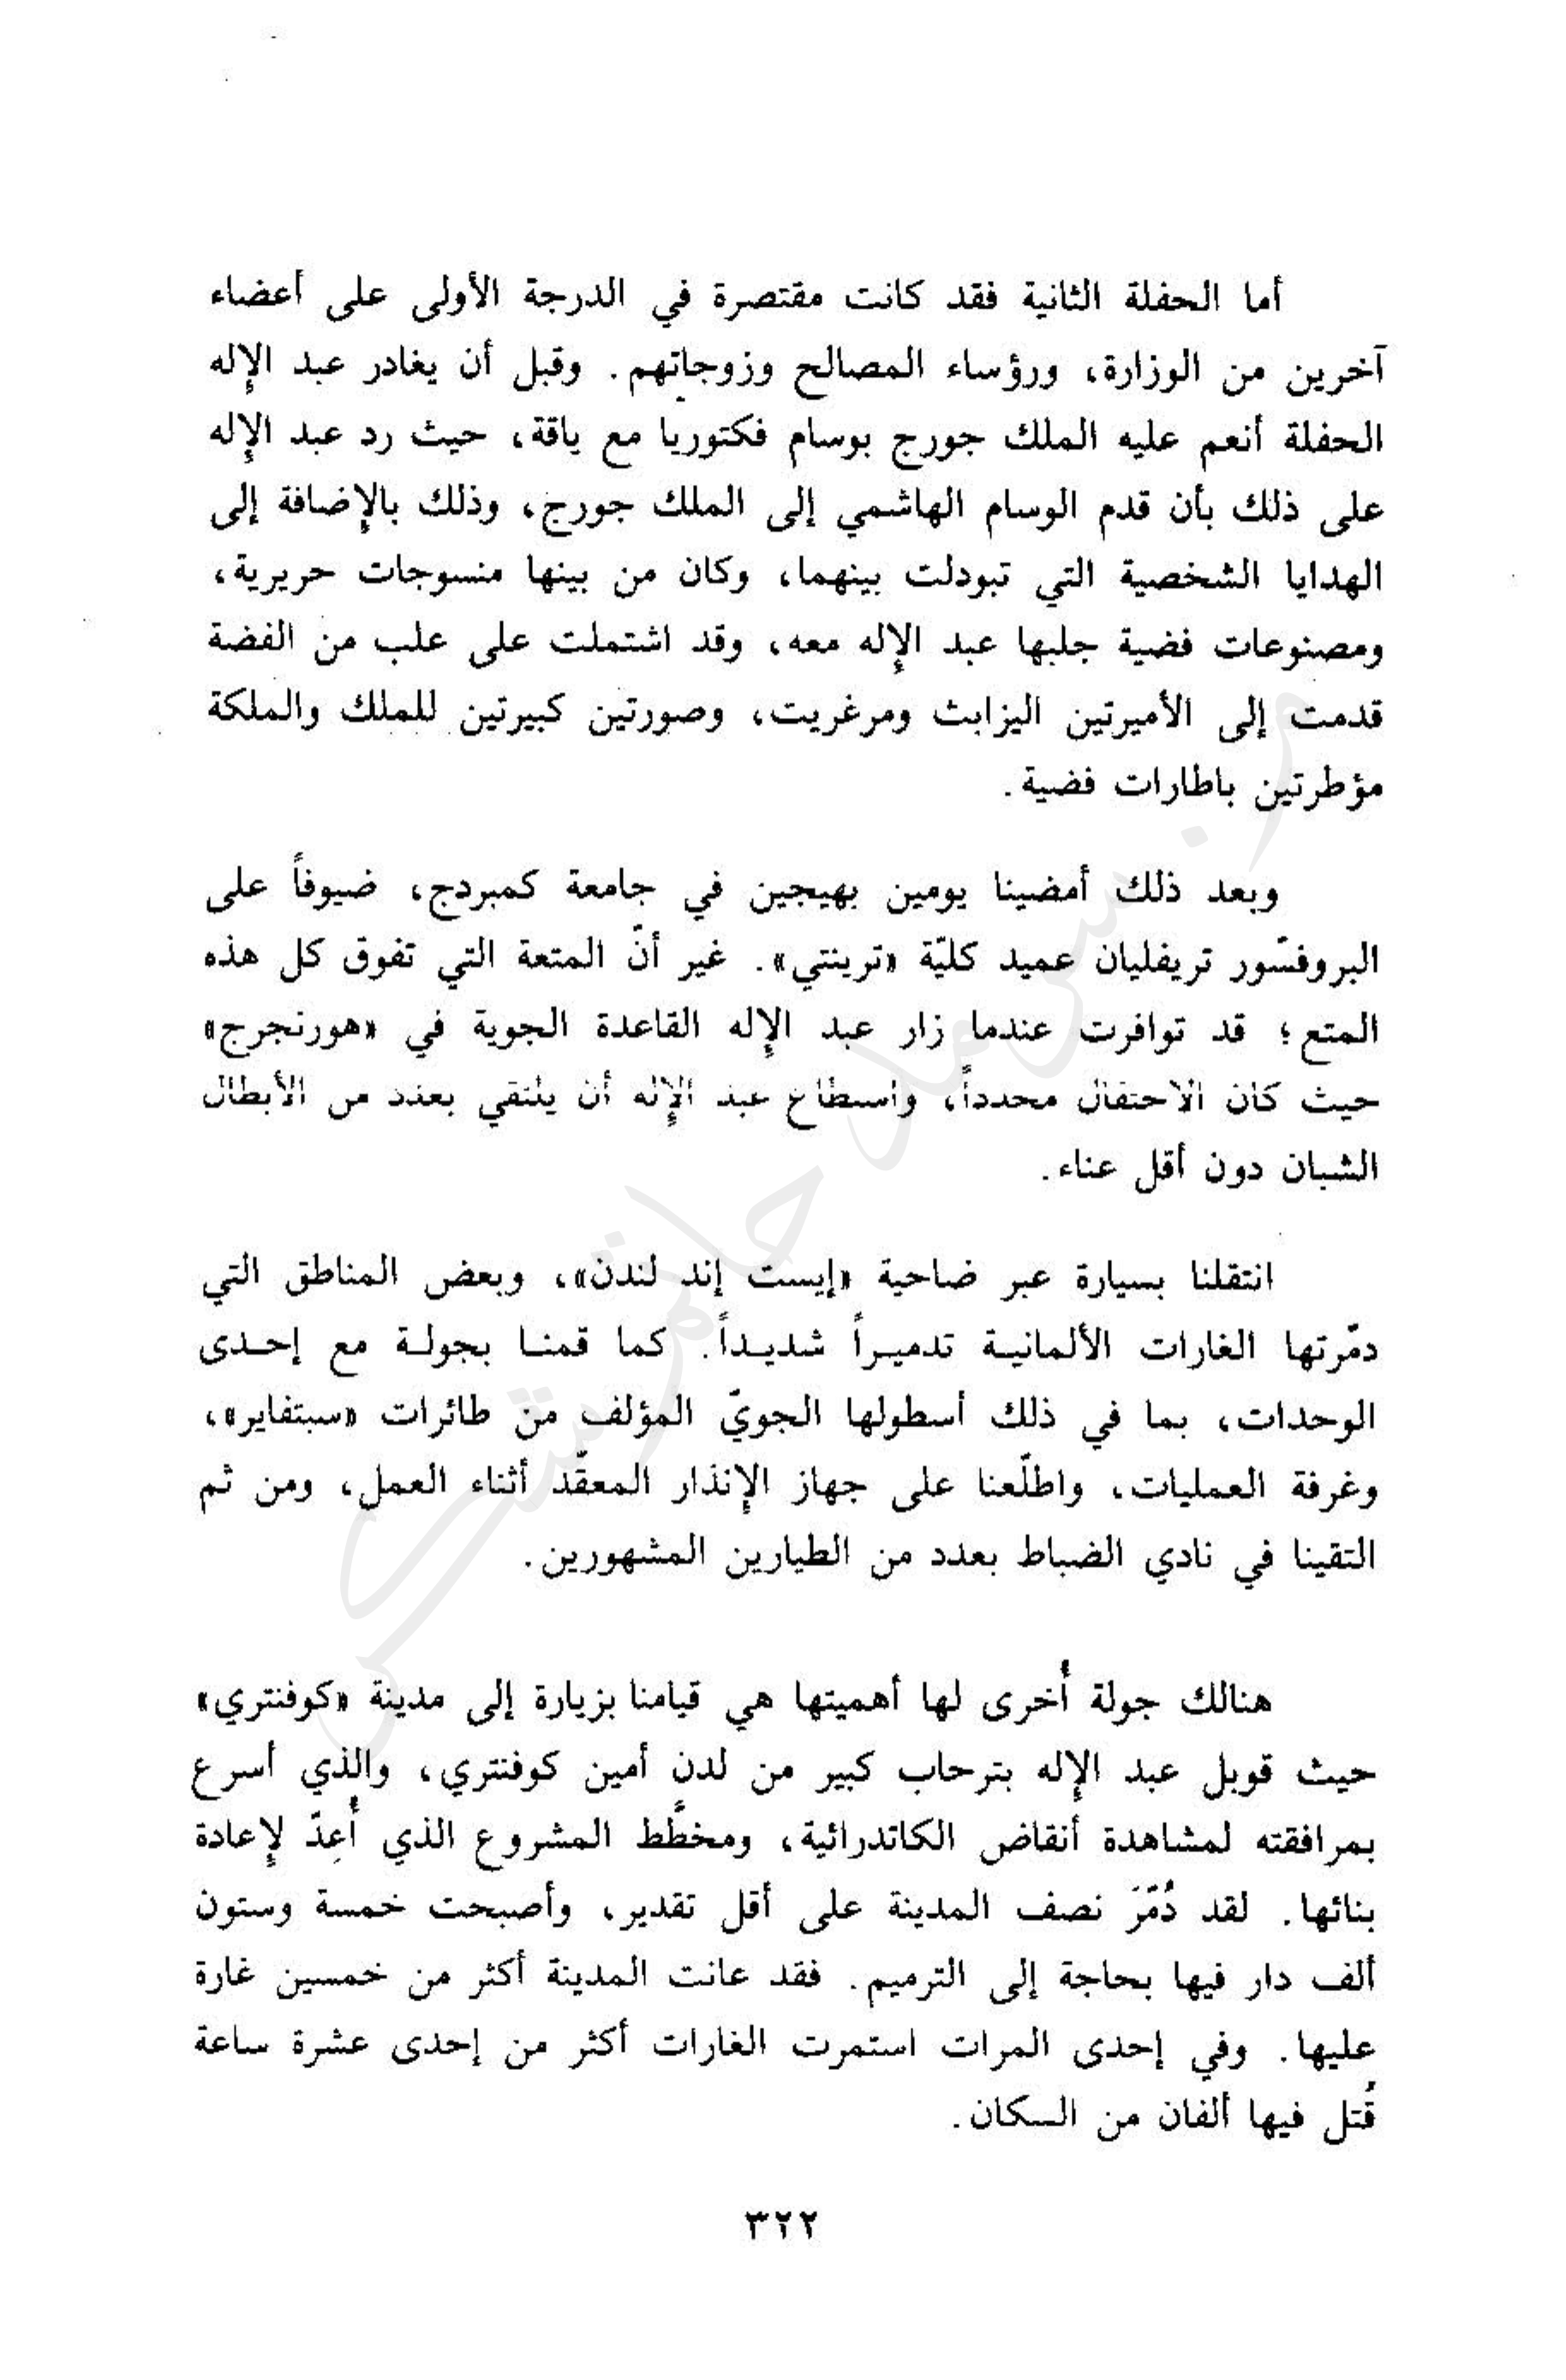 أما الحفلة الثانية فقد كانت مقتصرة في الدرجة الأولى على أعضاء
آخرين من الوزارة، ورؤساء المصالح وزوجاتهم. وقبل أن يغادر عبد الإله
الحفلة أنعم عليه الملك جورج بوسام فكتوريا مع ياقة، حيث رد عبد الإله
على ذلك بأن قدم الوسام الهاشمي إلى الملك جورج، وذلك بالإضافة إلى
الهدايا الشخصية التي تبودلت بينهما، وكان من بينها منسوجات حريرية،
ومصنوعات فضية جلبها عبد الإله معه، وقد اشتملت على علب من الفضة
قدمت إلى الأميرتين اليزابث ومرغريت، وصورتين كبيرتين للملك والملكة
مؤطرتين باطارات فضية.
وبعد ذلك أمضينا يومين بهيجين في جامعة كمبردج، ضيوفاً على
البروفسّور تريفليان عميد كليّة «ترينتي». غير أنّ المتعة التي تفوق كل هذه
المتع؛ قد توافرت عندما زار عبد الإله القاعدة الجوية في «هورنجرج»
حيث كان الاحتفال محدداً، واسطاع عبد الإله أن يلتقي بعدد من الأبطال
الشبان دون أقل عناء.
انتقلنا بسيارة عبر ضاحية «إيست إند لندن»، وبعض المناطق التي
دمّرتها الغارات الألمانية تدميراً شديداً. كما قمنا بجولة مع إحدى
الوحدات، بما في ذلك أسطولها الجويّ المؤلف من طائرات «سبتفاير»،
وغرفة العمليات، واطلّعنا على جهاز الإنذار المعقّد أثناء العمل، ومن ثم
التقينا في نادي الضباط بعدد من الطيارين المشهورين.
هنالك جولة أُخرى لها أهميتها هي قيامنا بزيارة إلى مدينة «كوفنتري»
حيث قوبل عبد الإله بترحاب كبير من لدن أمين كوفنتري، والذي أسرع
بمرافقته لمشاهدة أنقاض الكاتدرائية، ومخطَّط المشروع الذي أُعِدّ لإعادة
بنائها. لقد دُمّرَ نصف المدينة على أقل تقدير، وأصبحت خمسة وستون
ألف دار فيها بحاجة إلى الترميم. فقد عانت المدينة أكثر من خمسين غارة
عليها. وفي إحدى المرات استمرت الغارات أكثر من إحدى عشرة ساعة
قُتل فيها ألفان من السكان.
٣٢٢